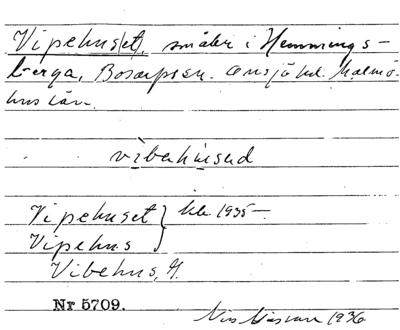 Vipehus(et), småler i Hemmings-
berga, Bosarpssn. Onsjö hd. Malmö-
hus län.
vibahused
Vipehuset } kbr 1935-
Vipehus
Vibehus, H.
Nr 5709.
1936